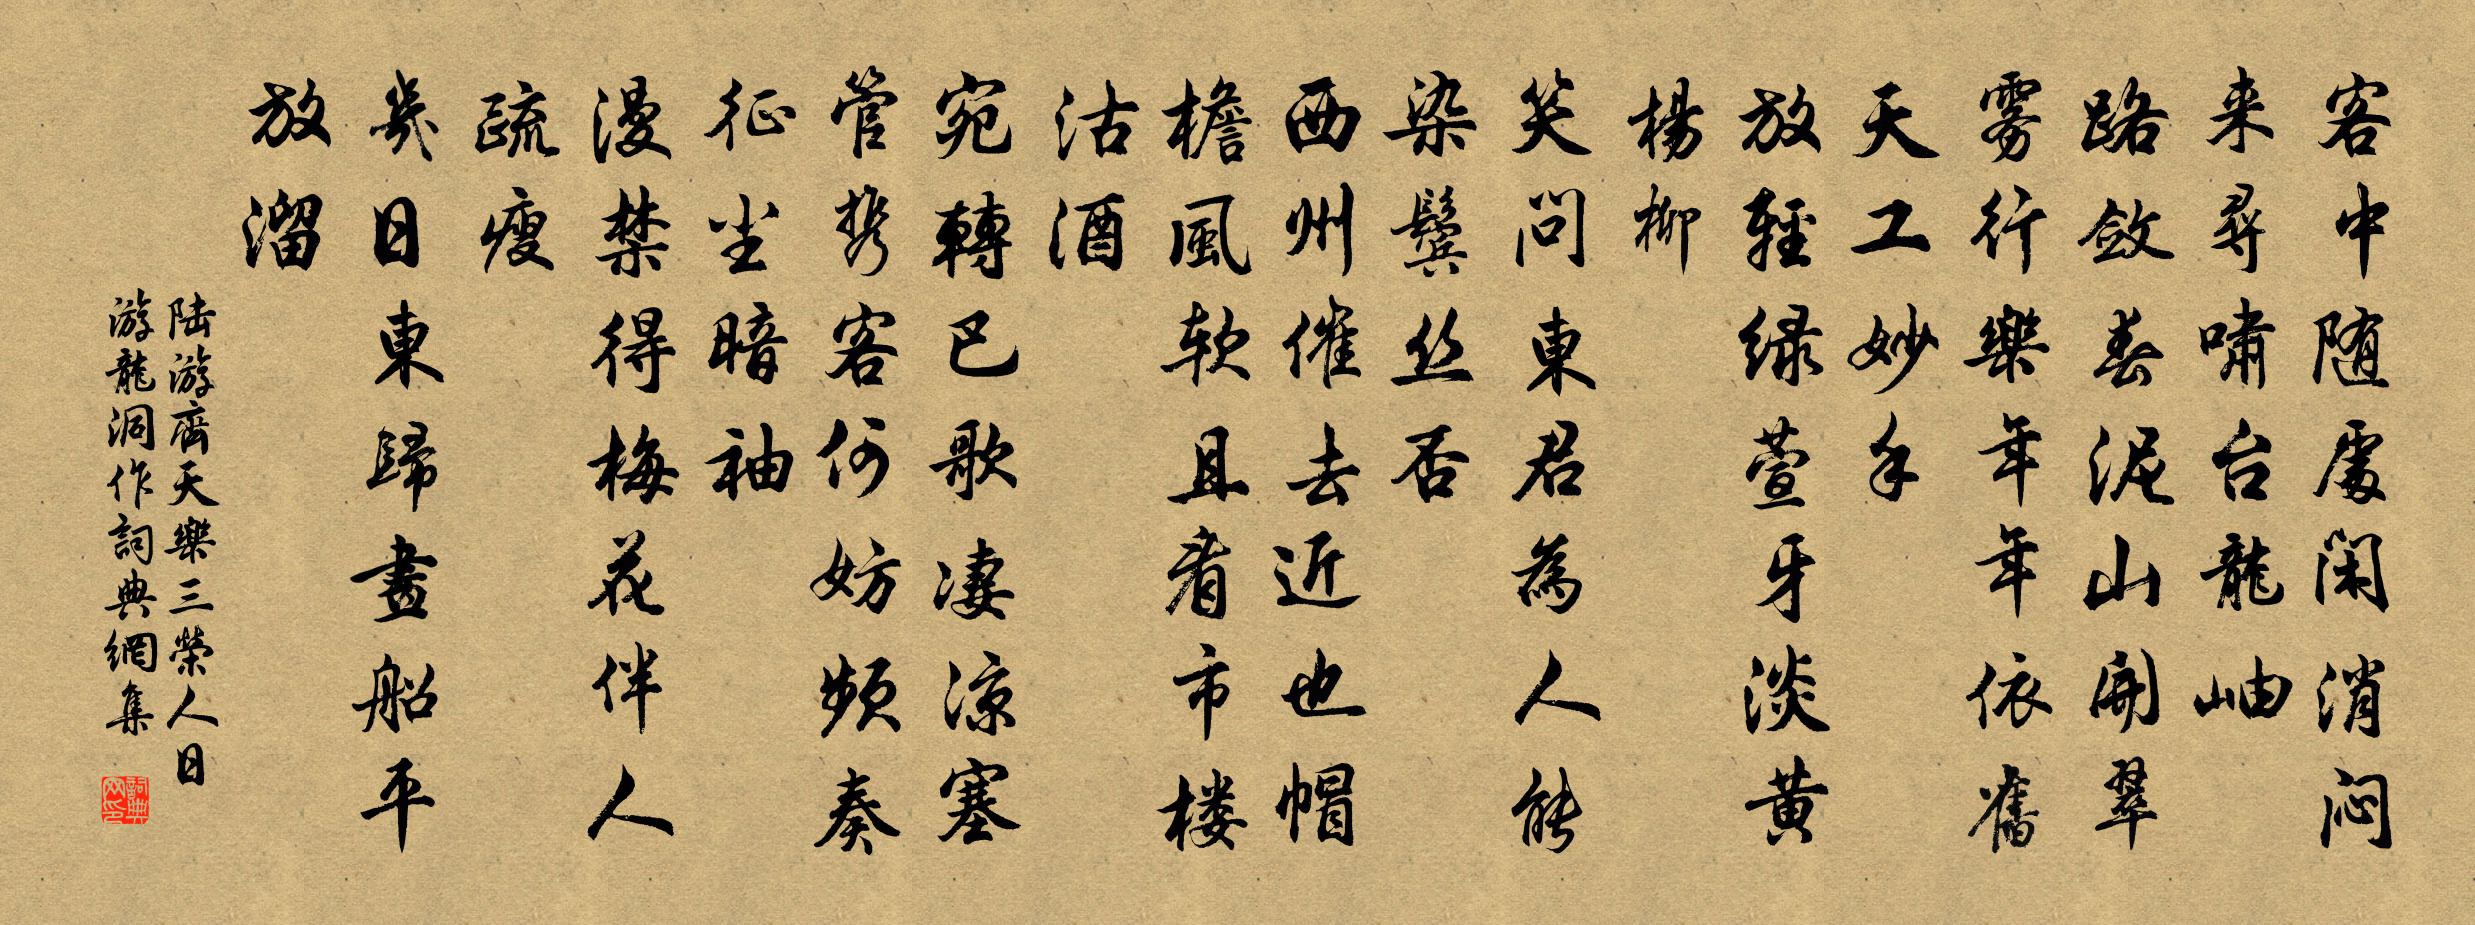 客中随處闲消闷
来尋啸台龍岫
路斂春泥山開翠
雾行樂年年依舊
天工妙手
放轻绿萱牙淡黄
楊柳
笑问東君為人能
染鬓丝否
西州催去近也帽
檐風软且看市楼
沽酒
宛轉巴歌凄凉塞
管携客何妨频奏
征尘暗袖
漫禁得梅花伴人
疏瘦
幾日東歸畫船平
放溜
陆游齊天樂三榮人日
游龍洞作詞典網集
詞典网印